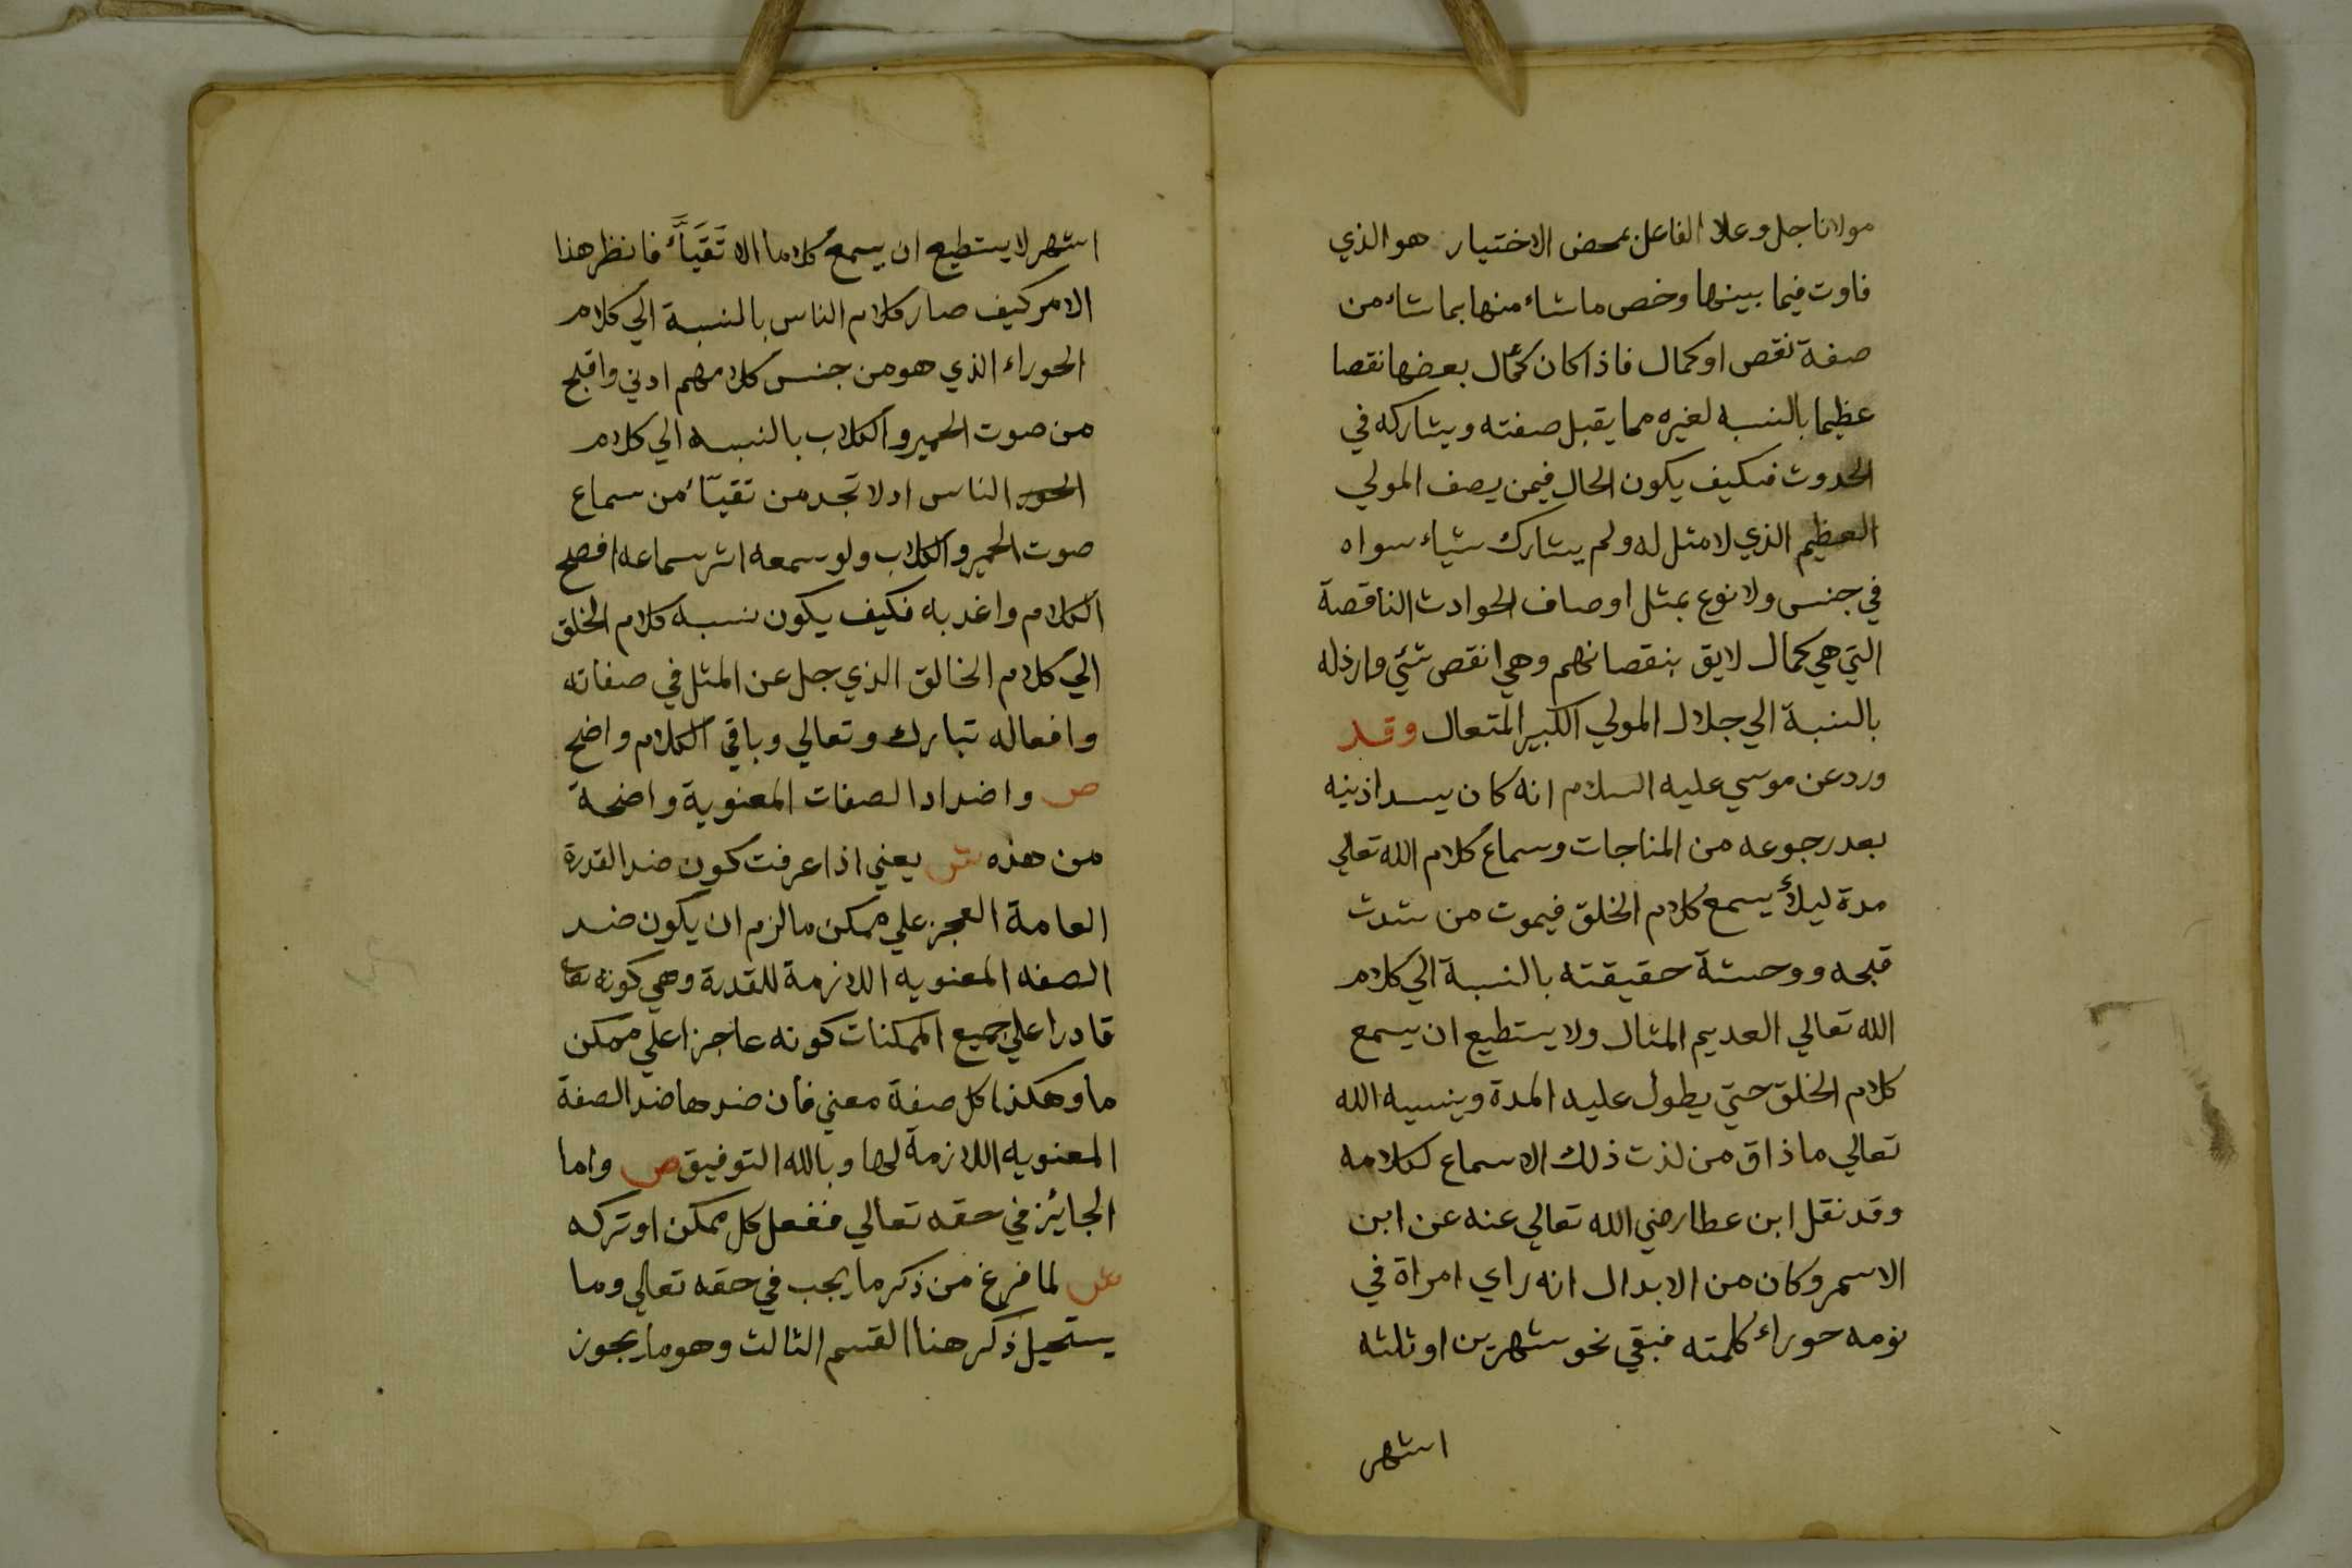 مولانا جل وعلا الفاعل بمحض الاختيار هو الذي
فاوت فيما بينها وخص ما شاء منها بما شاء من
صفة نقص او كمال فاذا كان كمال بعضها نقصا
عظيما بالنسبه لغيره مما يقبل صفته ويشاركه في
الحدوث فكيف يكون الحال فيمن يصف المولي
العظيم الذي لا مثل له ولم يشارك شياء سواه
في جنس ولا نوع بمثل اوصاف الحوادث الناقصة
التي هي كمال لايق بنقصانهم وهي انقص شئي وارذله
بالنسبة الي جلال المولي الكبير المتعال وقد
ورد عن موسي عليه السلام انه كان يسد اذنيه
بعد رجوعه من المناجات وسماع كلام الله تعالي
مدة ليلأ يسمع كلام الخلق فيموت من شدت
قبحه ووحشة حقيقته بالنسبة الي كلام
الله تعالي العديم المثال ولا يستطيع ان يسمع
كلام الخلق حتي يطول عليه المدة وينسيه الله
تعالي ما ذاق من لذت ذلك الاسماع لكلامه
وقد نقل ابن عطا رضي الله تعالي عنه عن ابن
الاسمر وكان من الابدال انه راي امراة في
نومه حوراء كلمته فبقي نحو شهرين او ثلثه
اشهر
اشهر لا يستطيع ان يسمع كلاما الا تَقَيَّأَ فانظر هذا
الامر كيف صار كلام الناس بالنسبة الي كلام
الحوراء الذي هو من جنس كلامهم ادني واقبح
من صوت الحمير والكلاب بالنسبه الي كلام
الحور الناس اد لا تجد من تقيّأ من سماع
صوت الحمير والكلاب ولو سمعه اثر سماعه افصح
الكلام واعذبه فكيف يكون نسبه كلام الخلق
الي كلام الخالق الذي جل عن المثل في صفاته
وافعاله تبارك وتعالي وباقي الكلام واضح
ص واضداد الصفات المعنوية واضحة
من هذه ش يعني اذا عرفت كون ضد القدرة
العامة العجز علي ممكن ما لزم ان يكون ضد
الصفه المعنويه اللازمة للقدرة وهي كونه تعا
قادرا علي جميع الممكنات كونه عاجزا علي ممكن
ما وهكذا كل صفة معني فان ضدها ضد الصفة
المعنويه اللازمة لها وبالله التوفيق ص واما
الجائيز في حقه تعالي ففعل كل ممكن او تركه
ش لما فرغ من ذكر ما يجب في حقه تعالي وما
يستحيل ذكر هنا القسم الثالث وهو ما يجوز